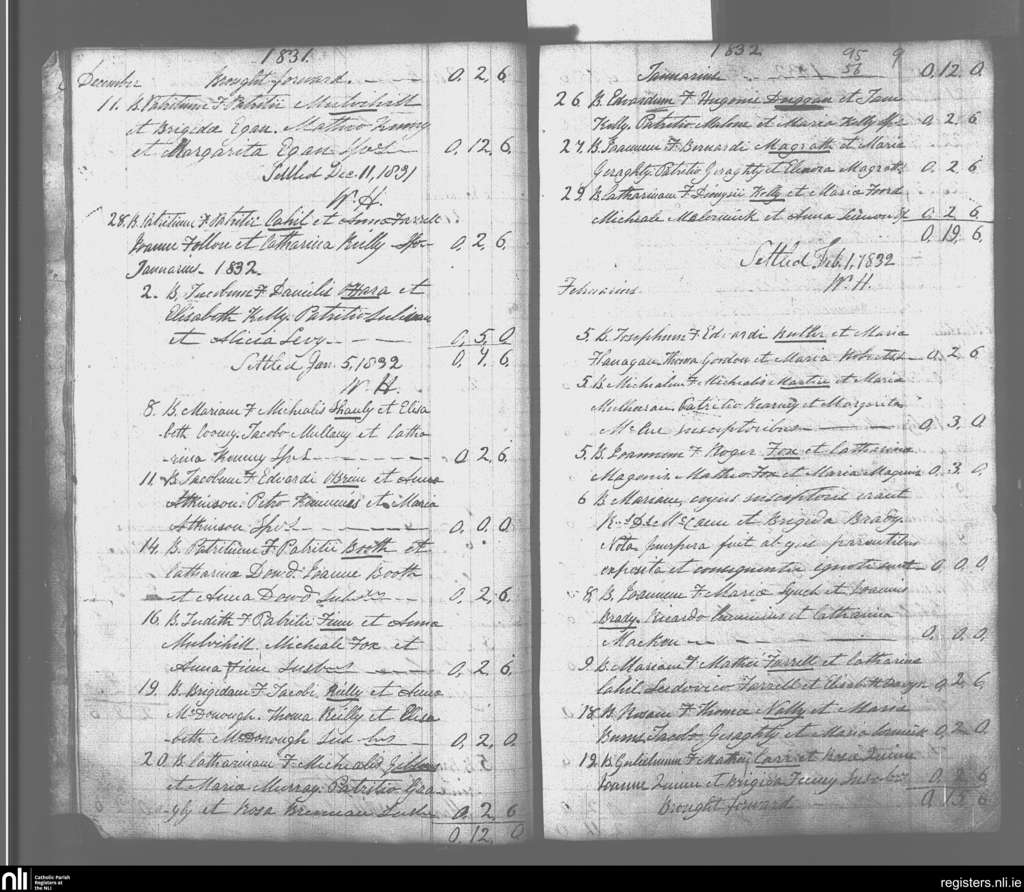 1831.
December Brought forward. 0. 2. 6
11. B. Patritium F Patritii Mulvihill
et Brigida Egan. Matheo Kenny
et Margarita Egan Spors 0. 12. 6.
Settled Dec. 11, 1831
W. H.
28. B. Patritium F Patritii Cahil et Anna Farrell
Joanne Fallon et Catharina Reilly 0. 2. 6
Januarius. 1832.
2. B. Jacobum F Danielis OHara et
Elisabeth Kelly. Patritio Sulivan
et Alicia Levy 0. 5. 0
0. 7. 6
Settled Jan. 5, 1832
W. H.
8. B. Mariam F Michealis Shauly et Elisa
beth Cooney. Jacobo Mullany et Catha
-rina Kenny Spors 0. 2. 6.
11. B. Jacobum F Edvardi OBrien et Anna
Atkinson. Petro et Maria
Atkinson Spors 0. 0. 0
14. B. Patritium F Patritii Booth et
Catharina Dowd. Joanne Booth
et Anna Dowd 0. 2. 6.
16. B. Judith F Patritii Finn et Anna
Mulvihill. Micheale Fox et
Anna Finn 0. 2. 6
19. B. Brigidam F Jacobi Reilly et Anna
McDonough. Thoma Reilly et Elisa
beth McDonough 0. 2. 0
20. B. Catharinam F Michealis
et Maria Murray. Patritio Gra
et Rosa Brennan 0. 2. 6
0. 12. 0
1832 95 9
56
Januarius 0. 12. 0
26. B. Edvardum F Hugonis Duggan et Jane
Kelly. Patritio Malone et Maria Kelly 0. 2. 6
27. B. Joannem F Bernardi Magrath et Maria
Geraghty. Patritio Geraghty et Elenora Magrath 0. 2. 6
29. B. Catharinam F Dionysii Kelly et Maria Ford
Micheale McCormick et Anna 0. 2. 6
0. 19. 6.
Settled Feb. 1, 1832
W. H.
Februarius
5. B. Josephum F Edvardi et Maria
Flanagan. Thoma Gordon et Maria Roberts 0. 2. 6
5. B. Michealem F Michealis Martin et Maria
Patritio Kearney et Margarita
McCue susceptoribus 0. 3. 0
5. B. Joannem F Roger Fox et Catharina
Matheo Fox et Maria 0. 3. 0
6 B. Mariam, cujus susceptoris erant
McCann et Brigida Brady.
Nota puerpera fuit atque parentibus
exposita et consequentia ignoti sunt 0. 0. 0
8. B. Joannem F Maria Lynch et Joannis
Brady. Ricardo et Catharina
Macken 0. 0. 0.
9. B. Mariam F Mathei Farrell et Catharina
Cahil. Ludovico Farrell et 0. 2. 6
18. B. Rosam F Thoma Nally et Maria
Burns. Jacobo Geraghty et Maria 0. 2. 0
19. B. Gulielmum F Mathei Carr et Rosa Quinn
Joanne Quinn et Brigida Feeny 0. 2. 6
Brought forward 0. 15. 6
nli
Catholic Parish
Registers at
the NLI
registers.nli.ie